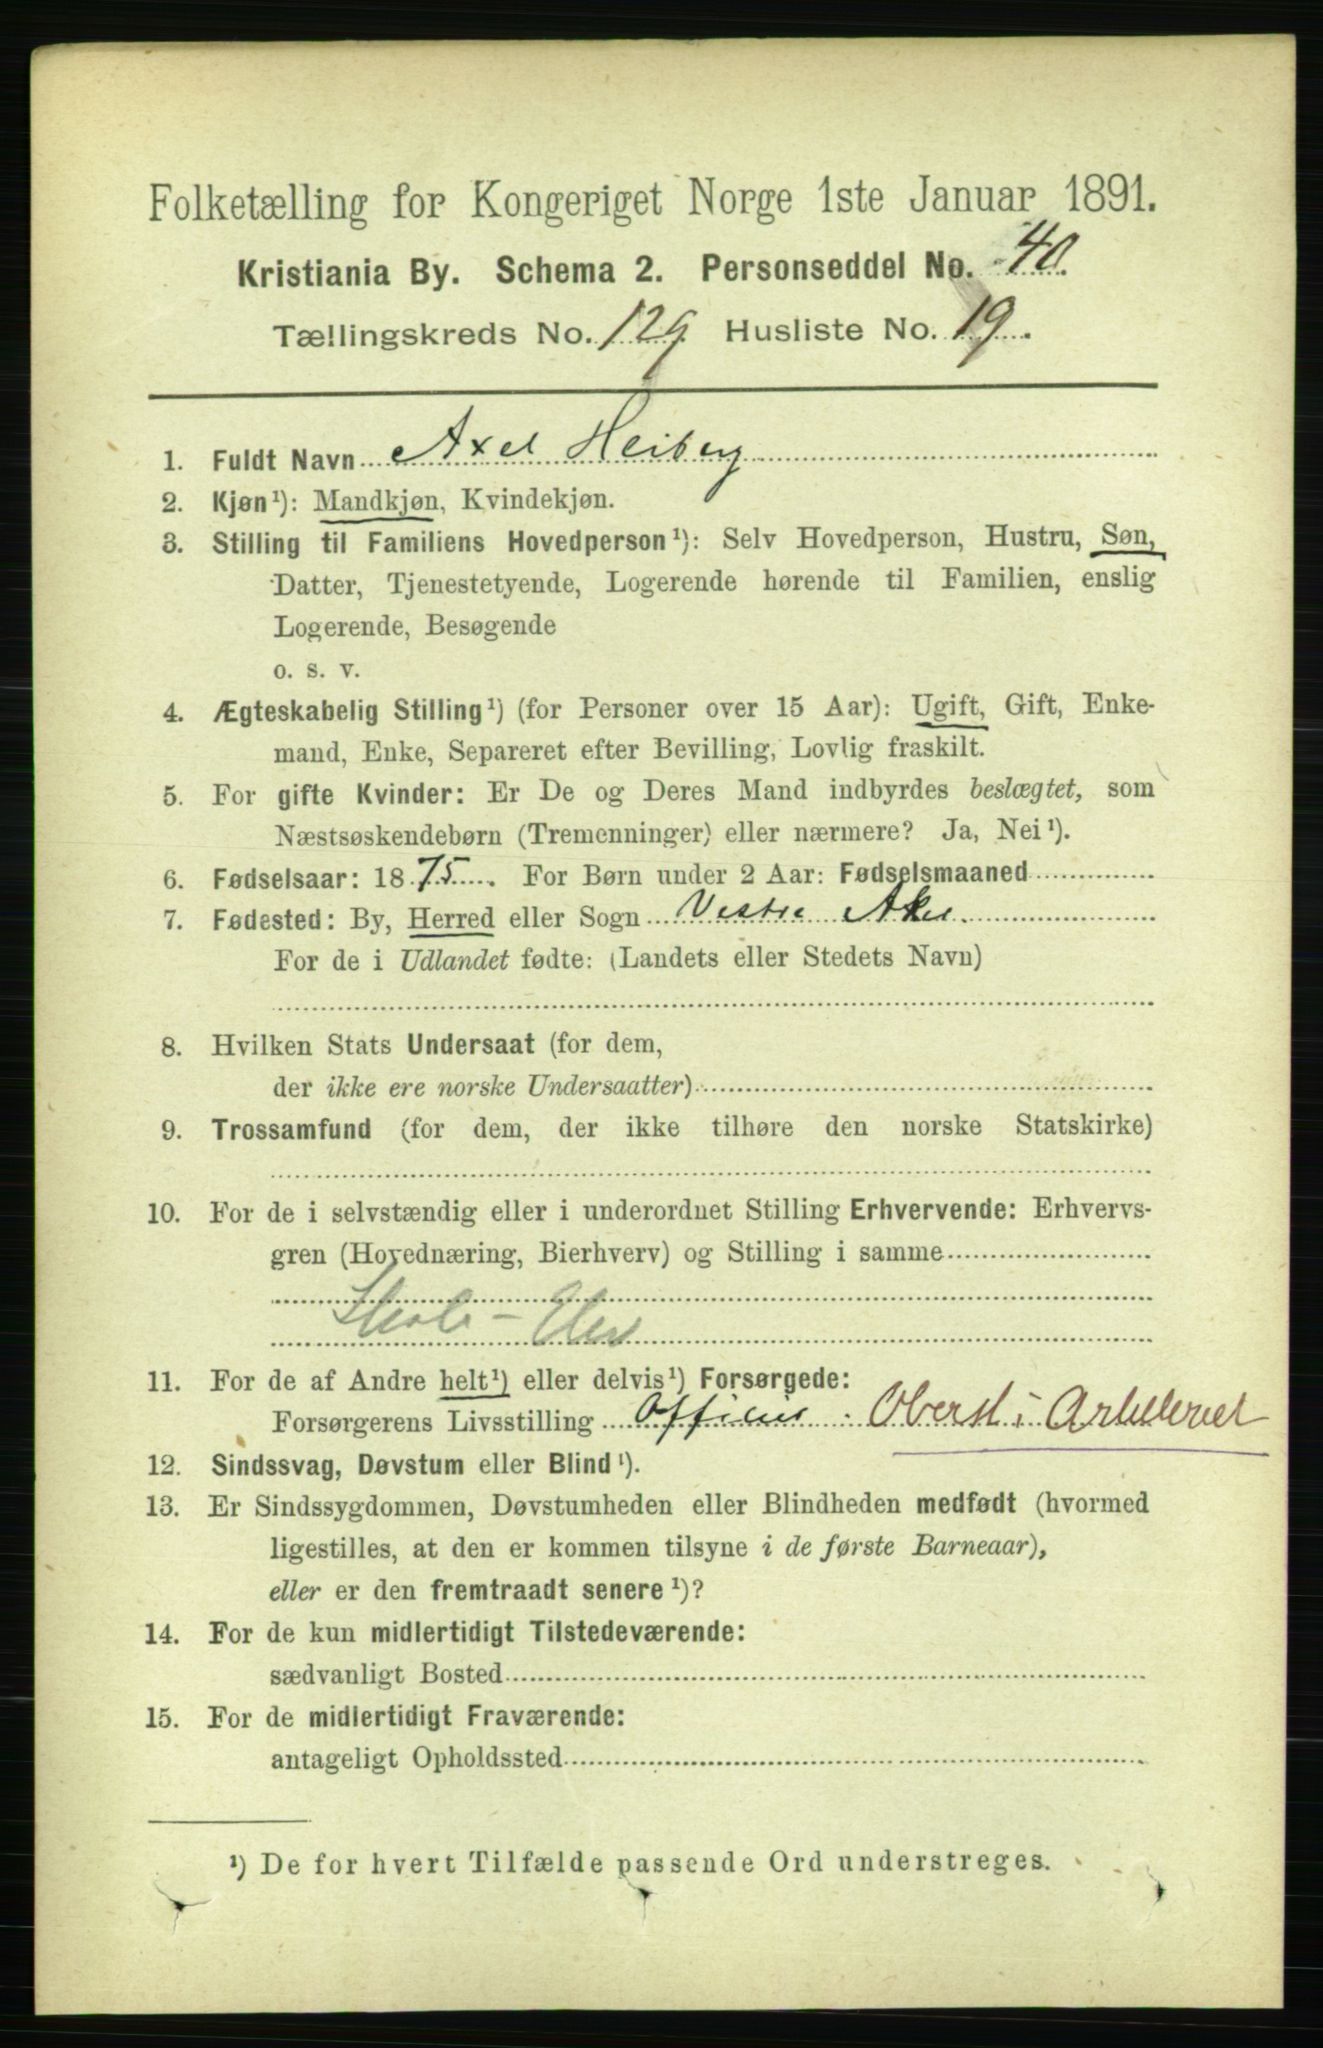 Folketælling for Kongeriget Norge 1ste Januar 1891.
Kristiania By. Schema 2. Personseddel No. 40.
Tællingskreds No. 129 Husliste No. 19.
1. Fuldt Navn Axel Heiberg
2. Kjøn¹): Mandkjøn, Kvindekjøn.
3. Stilling til Familiens Hovedperson¹): Selv Hovedperson, Hustru, Søn,
Datter, Tjenestetyende, Logerende hørende til Familien, enslig
Logerende, Besøgende
o. s. v.
4. Ægteskabelig Stilling¹) (for Personer over 15 Aar): Ugift, Gift, Enke-
mand, Enke, Separeret efter Bevilling, Lovlig fraskilt.
5. For gifte Kvinder: Er De og Deres Mand indbyrdes beslægtet, som
Næstsøskendebørn (Tremenninger) eller nærmere? Ja, Nei¹).
6. Fødselsaar: 1875. For Børn under 2 Aar: Fødselsmaaned
7. Fødested: By, Herred eller Sogn Vestre Aker.
For de i Udlandet fødte: (Landets eller Stedets Navn)
8. Hvilken Stats Undersaat (for dem,
der ikke ere norske Undersaatter)
9. Trossamfund (for dem, der ikke tilhøre den norske Statskirke)
10. For de i selvstændig eller i underordnet Stilling Erhvervende: Erhvervs-
gren (Hovednæring, Bierhverv) og Stilling i samme
Skole-Elev
11. For de af Andre helt¹) eller delvis¹) Forsørgede:
Forsørgerens Livsstilling Officier. Oberst i Artilleriet
12. Sindssvag, Døvstum eller Blind¹).
13. Er Sindssygdommen, Døvstumheden eller Blindheden medfødt (hvormed
ligestilles, at den er kommen tilsyne i de første Barneaar),
eller er den fremtraadt senere¹)?
14. For de kun midlertidigt Tilstedeværende:
sædvanligt Bosted
15. For de midlertidigt Fraværende:
antageligt Opholdssted
¹) De for hvert Tilfælde passende Ord understreges.